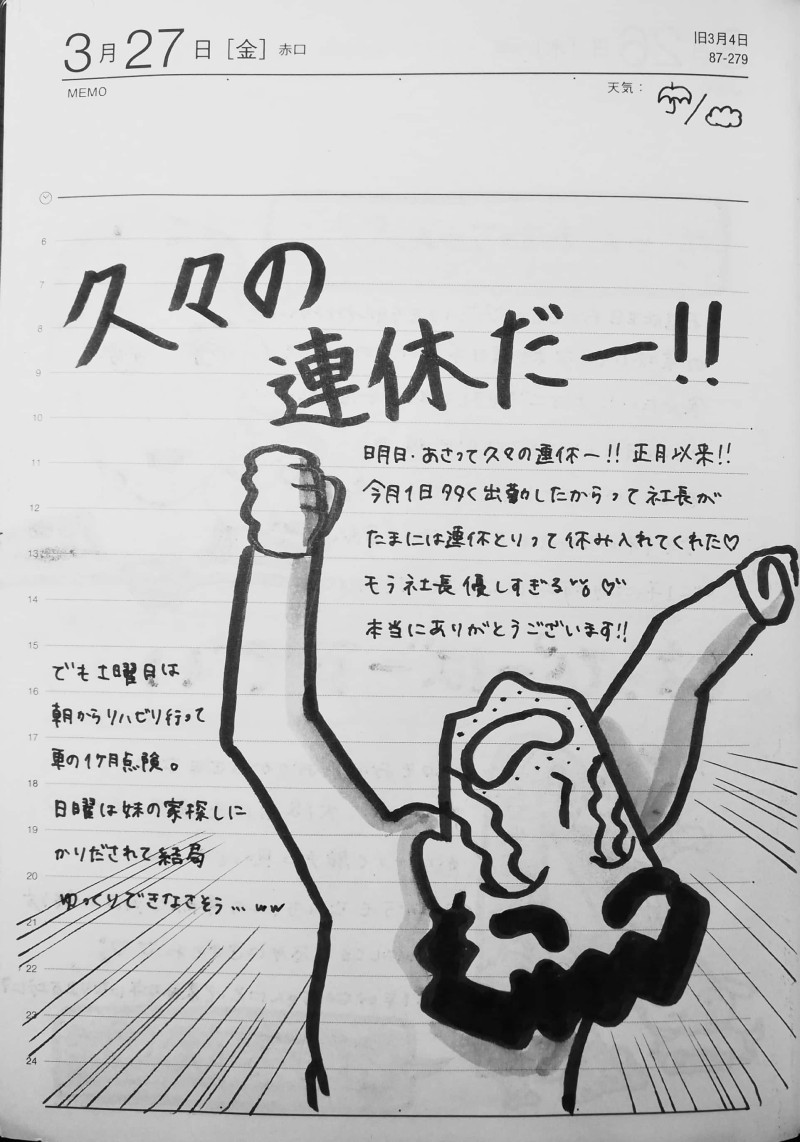 3月27日[金]赤口
旧3月4日
87-279
MEMO
天気：
6
7
8
9
10
11
12
13
14
15
16
17
18
19
20
21
22
23
24
久々の
連休だー!!
明日・あさって久々の連休ー!! 正月以来!!
今月1日多く出勤したからって社長が
たまには連休とりって休み入れてくれた♡
モラ社長優しすぎる
本当にありがとうございます!!
でも土曜日は
朝からリハビリ行って
車の1ヶ月点険。
日曜は妹の家探しに
かりだされて結局
ゆっくりできなさそう…ww